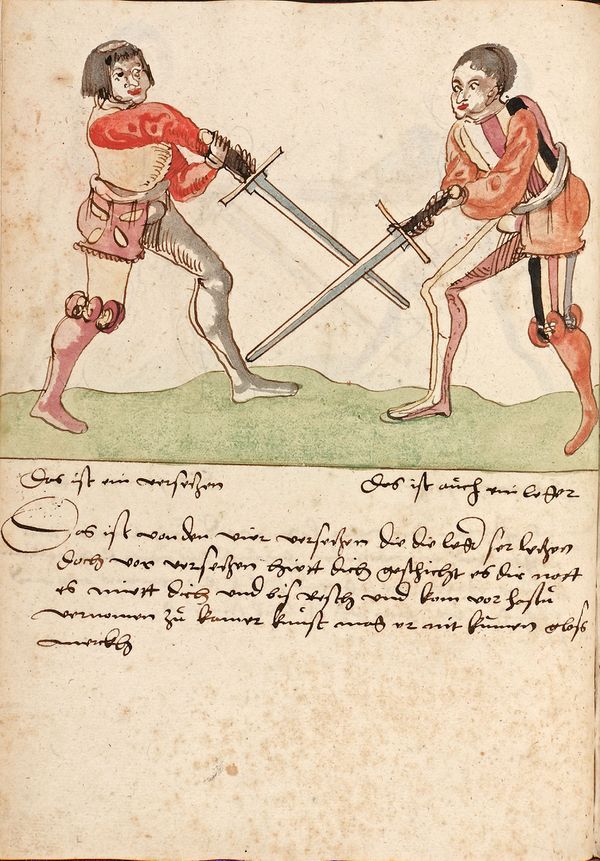 Das ist ein versetzen
Das ist auch ein leger
Das ist von den vier versetzen die die leger ser letzen
doch vor versetzen hiett dich geschicht es dir nott
es miett dich und bis resch und kom vor hastu
vernomen zu kainer kunst mag er nit kumen glosß
merckh